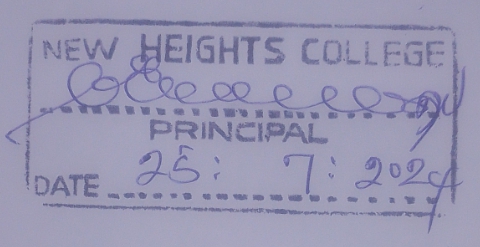 NEW HEIGHTS COLLEGE
PRINCIPAL
DATE 25: 7: 2024